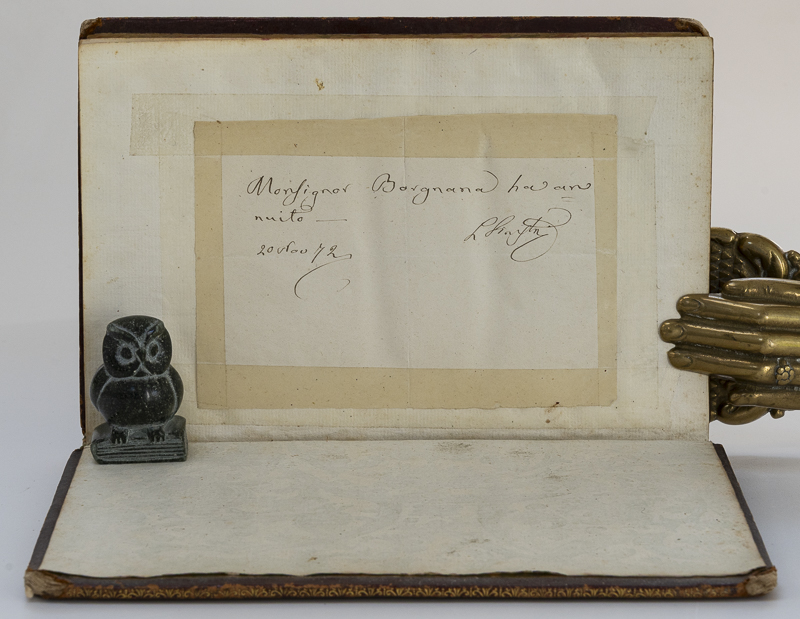 Monsignor Borgnana ha an
nuito —
20 Nov 72